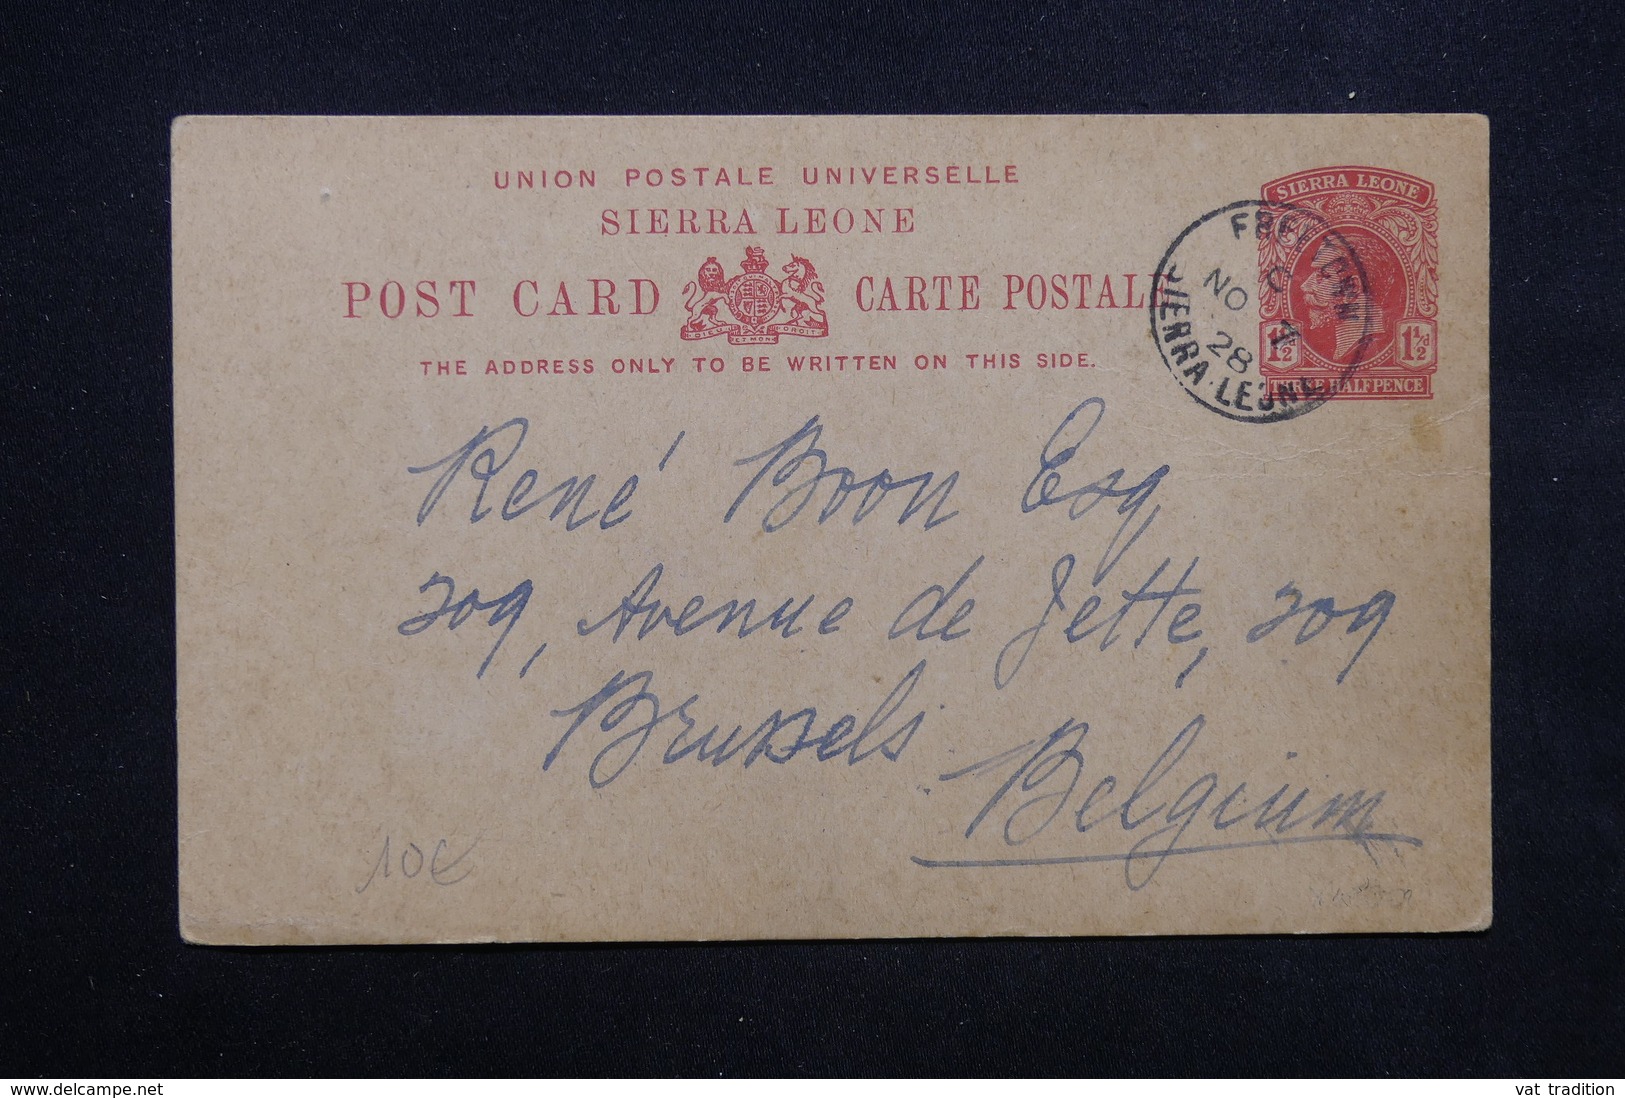 UNION POSTALE UNIVERSELLE
SIERRA LEONE
POST CARD CARTE POSTALE
DIEU ET MON DROIT
THE ADDRESS ONLY TO BE WRITTEN ON THIS SIDE.
SIERRA LEONE
1½d 1½d
THREE HALFPENCE
FREETOWN
C
NO 7
28
SIERRA LEONE
René Boon Esq,
209, Avenue de Jette, 209
Brussels
Belgium
10€
www.delcampe.net
vat tradition